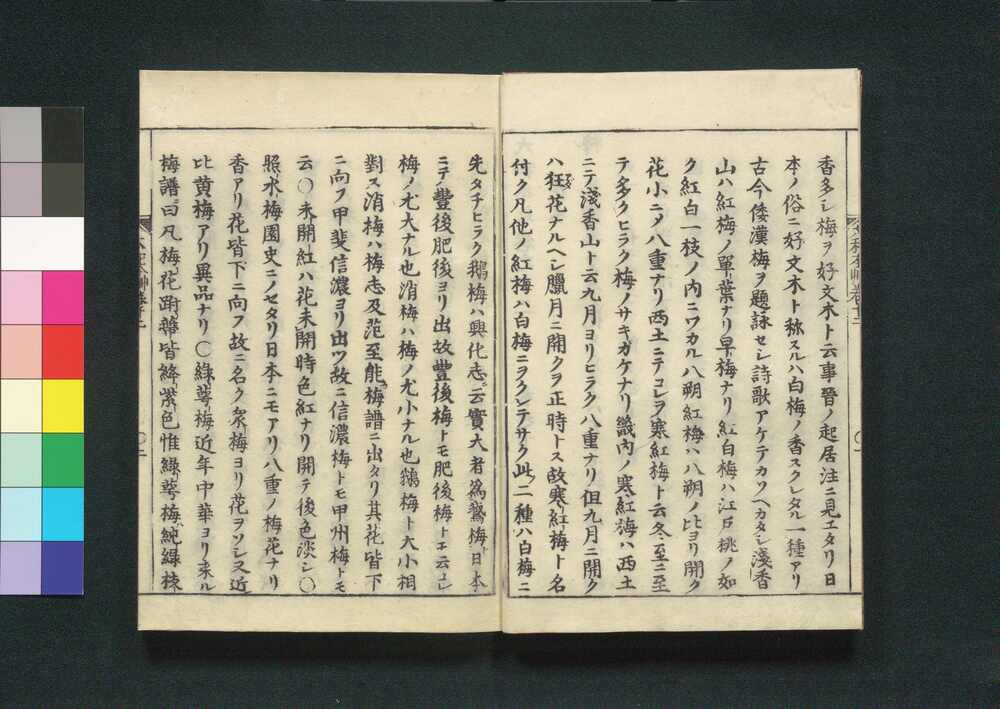 香多シ梅ヲ好文木ト云事晉ノ起居注ニ見エタリ日
本ノ俗ニ好文木ト称スルハ白梅ノ香スクレタル一種アリ
古今倭漢梅ヲ題詠セシ詩歌アケテカソヘカタシ淺香
山ハ紅梅ノ單葉ナリ早梅ナリ紅白梅ハ江戸桃ノ如
ク紅白一枝ノ内ニワカル八朔紅梅ハ八朔ノ比ヨリ開ク
花小ニ〆八重ナリ西土ニテコレヲ寒紅梅ト云冬至ニ至
テ多クヒラク梅ノサキガケナリ畿内ノ寒紅梅ハ西土
ニテ淺香山ト云九月ヨリヒラク八重ナリ但九月ニ開ク
ハ狂花ナルヘシ臘月ニ開クヲ正時トス故寒紅梅ト名
付ク凡他ノ紅梅ハ白梅ニヲクレテサク此二種ハ白梅ニ
先タチヒラク鵝梅ハ興化志ニ云實大者為鵝梅日本
ニテ豐後肥後ヨリ出故豐後梅トモ肥後梅トモ云コレ
梅ノ尤大ナル也消梅ハ梅ノ尤小ナル也鵝梅ト大小相
對ス消梅ハ梅志及范至能梅譜ニ出タリ其花皆下
ニ向フ甲斐信濃ヨリ出ツ故ニ信濃梅トモ甲州梅トモ
云○未開紅ハ花未開時色紅ナリ開テ後色淡シ○
照水梅園史ニノセタリ日本ニモアリ八重ノ梅花ナリ
香アリ花皆下ニ向フ故ニ名ク衆梅ヨリ花ヲソシ又近
比黄梅アリ異品ナリ○綠萼梅近年中華ヨリ来ル
梅譜曰凡梅花跗蔕皆絳紫色惟綠萼梅純綠枝